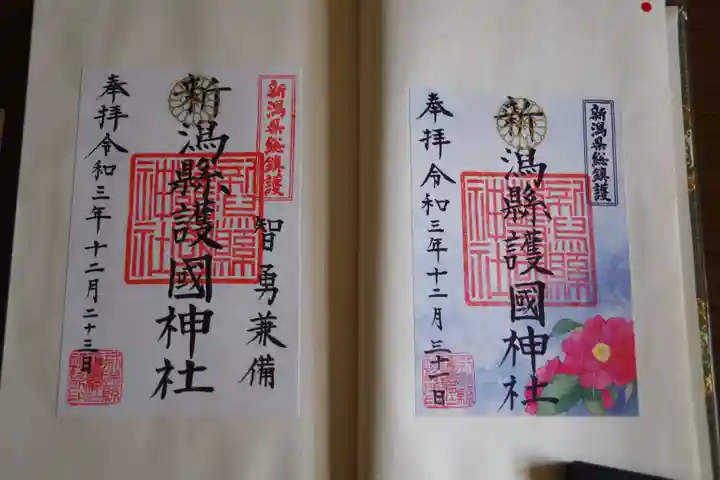 新潟県総鎮護
奉拝令和三年十二月二十三日
新潟縣護國神社
智勇兼備
新潟県総鎮護
奉拝令和三年十二月三十一日
新潟縣護國神社